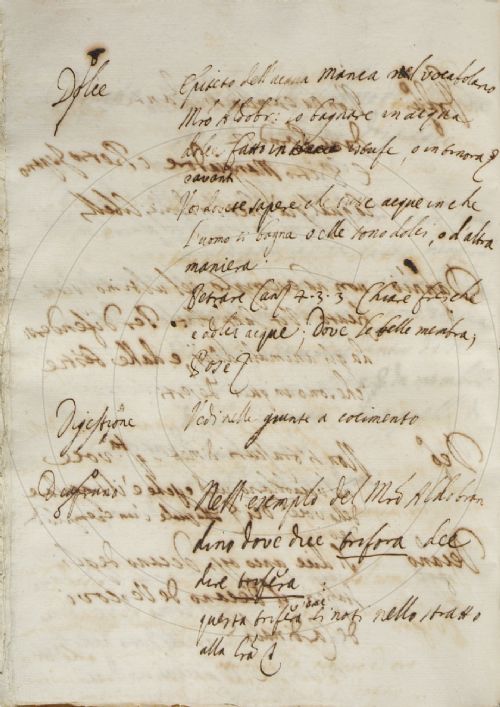 Dolce
Epiteto dell'acqua manca nel vocabolario
Mrõ Aldobr: lo bagnare in acqua
dolce fatto in stufe, o in
avanti
sapere che acque in che
l'uomo si bagna o elle sono dolci, o d'altra
maniera.
Petrarc Canz 7. 3. 3 Chiare fresche
e dolci acque; Dove le belle membra;
Pose
Digestione
Vedi nelle giunte a cocimento
Nell'esempio del Mrõ Aldobran
dino dove dice trifora dee
dire trifera
questa trifera si noti nello stratto
alla